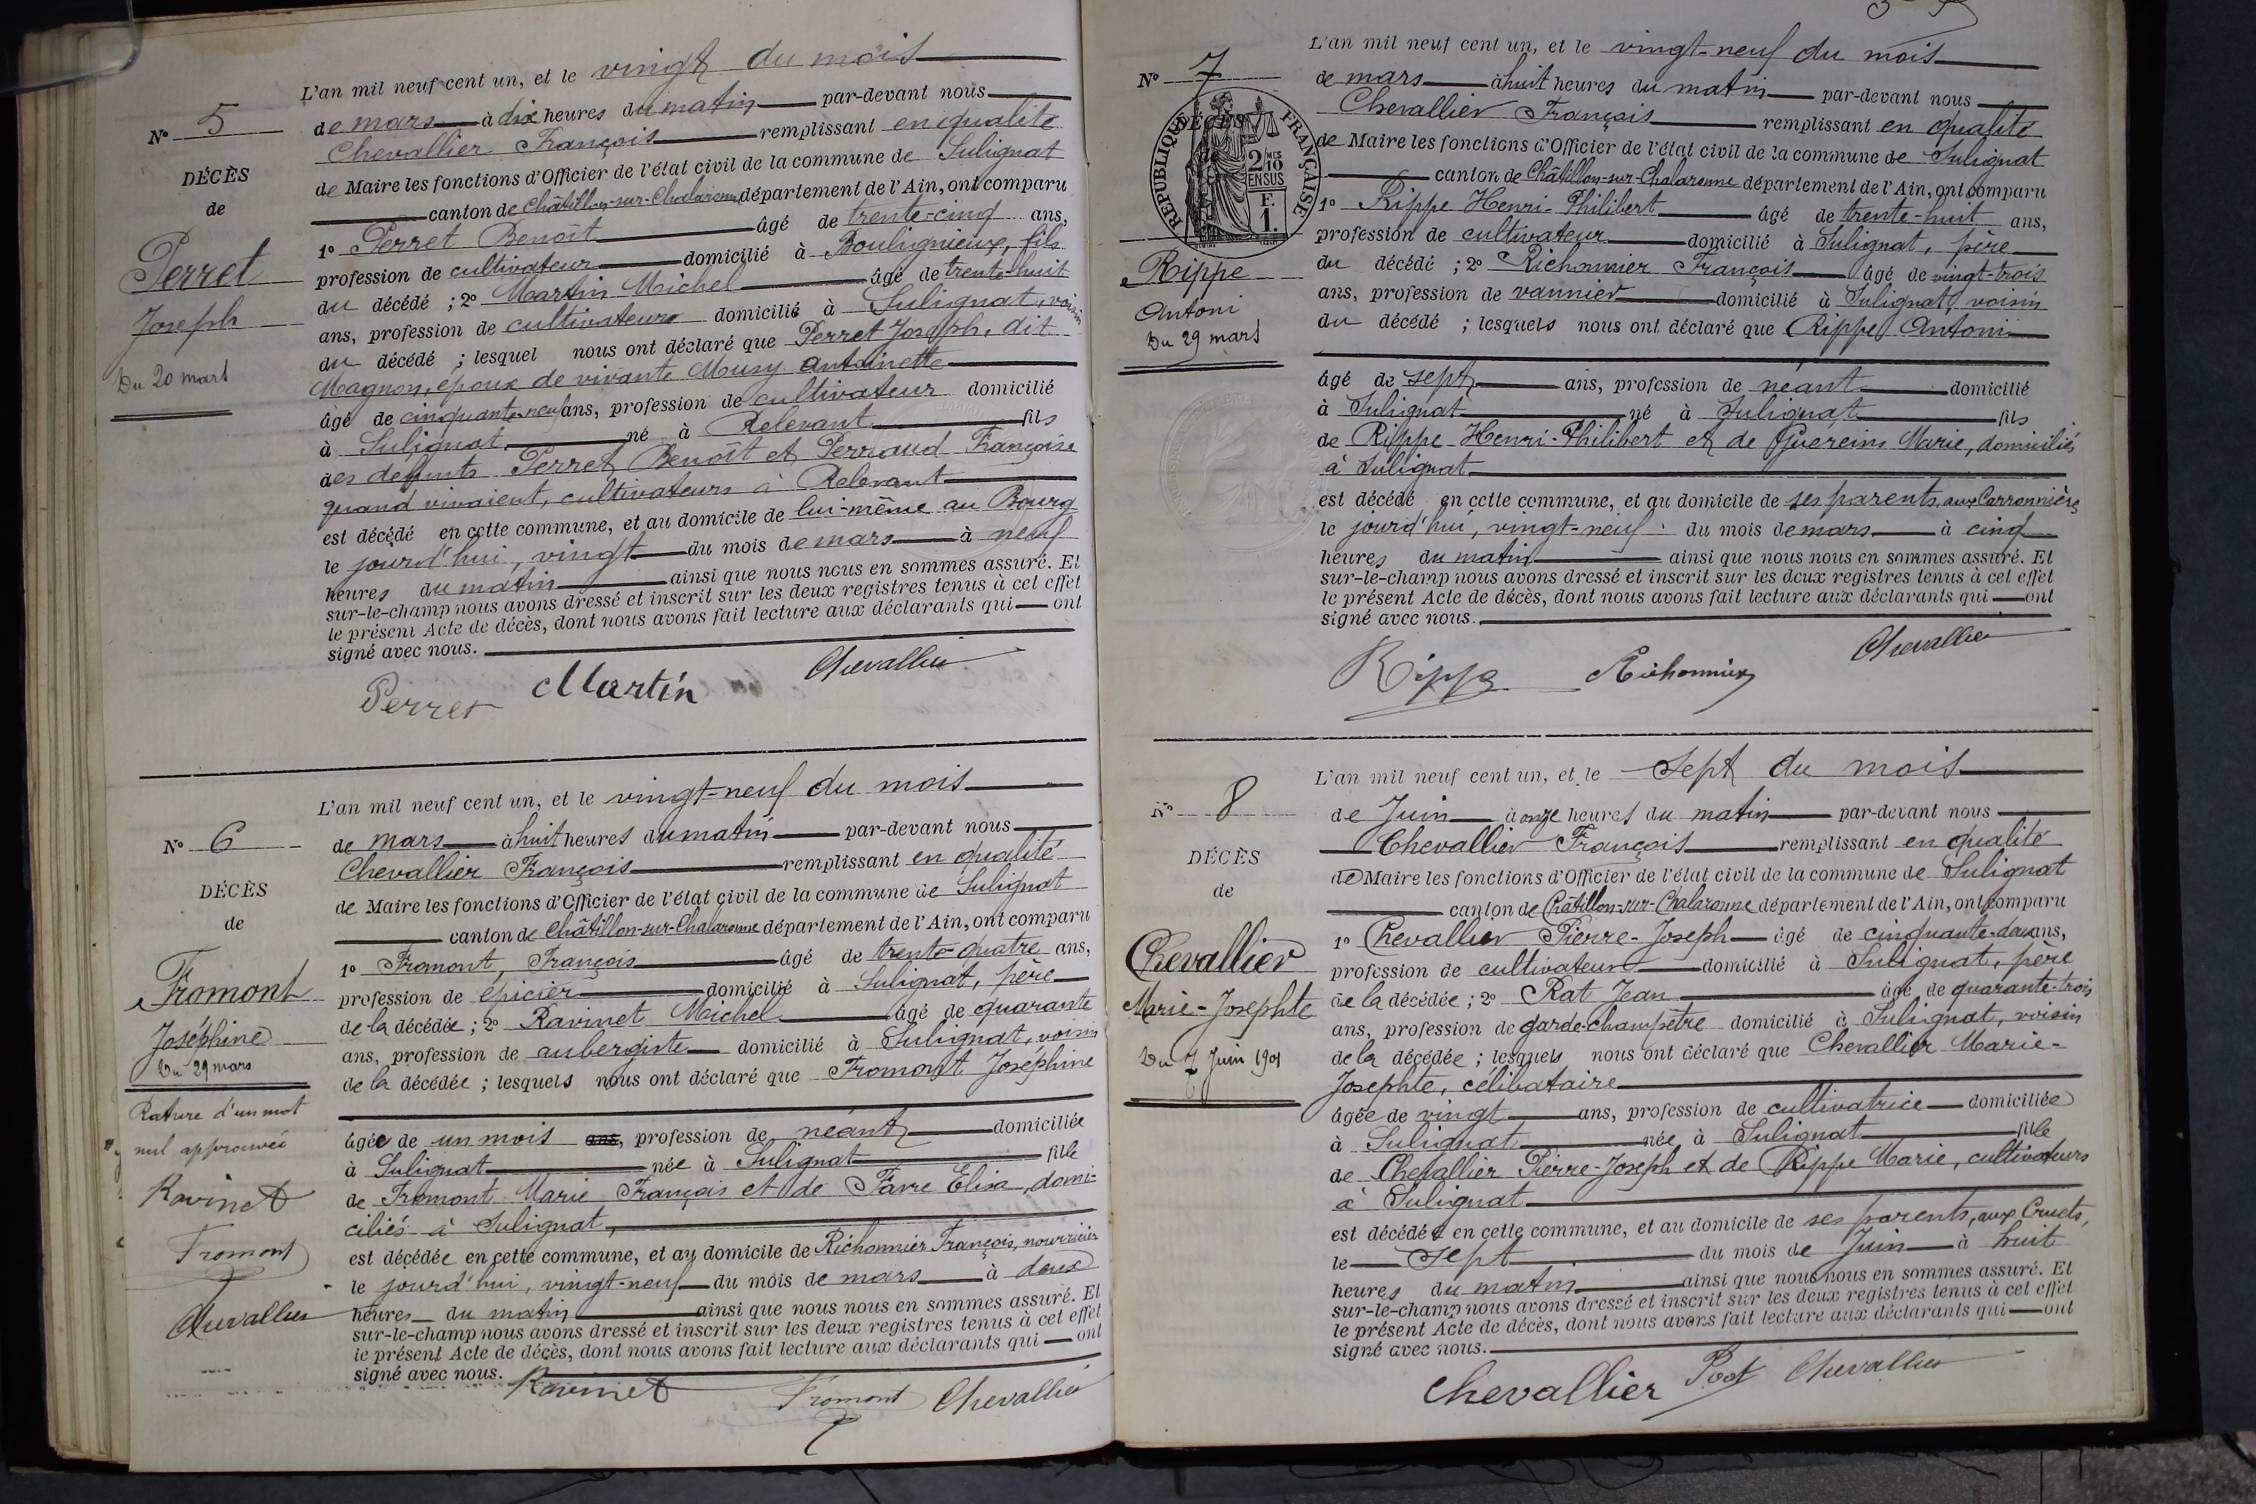 L'an mil neuf cent un, et le vingt du mois
N° 5
de mars à dix heures du matin par-devant nous
Chevallier François remplissant en qualité
DÉCÈS
de Maire les fonctions d'Officier de l'état civil de la commune de Sulignat
de
canton de Châtillon-sur-Chalaronne département de l'Ain, ont comparu
1° Perret Benoît âgé de trente-cinq ans,
Perret
profession de cultivateur domicilié à Bouligneux, fils
Joseph
du décédé ; 2° Martin Michel âgé de trente-huit
ans, profession de cultivateur domicilié à Sulignat, voisin
Du 20 mars
du décédé ; lesquel nous ont déclaré que Perret Joseph, dit
Magnon, époux de vivante Mousy Antoinette
âgé de cinquante-neuf ans, profession de cultivateur domicilié
à Sulignat né à Relevant fils
des defunts Perret Benoît et Perraud Françoise
quand vivaient, cultivateurs à Relevant
est décédé en cette commune, et au domicile de lui-même au Bourg
le jourd'hui, vingt du mois de mars à neuf
heures du matin ainsi que nous nous en sommes assuré. Et
sur-le-champ nous avons dressé et inscrit sur les deux registres tenus à cet effet
le présent Acte de décès, dont nous avons fait lecture aux déclarants qui ont
signé avec nous.
Perret Martin Chevallier
L'an mil neuf cent un, et le vingt-neuf du mois
N° 6
de mars à huit heures du matin par-devant nous
Chevallier François remplissant en qualité
DÉCÈS
de Maire les fonctions d'Officier de l'état civil de la commune de Sulignat
de
canton de Châtillon-sur-Chalaronne département de l'Ain, ont comparu
1° Fromont, François âgé de trente-quatre ans,
Fromont
profession de épicier domicilié à Sulignat, père
Joséphine
de la décédée ; 2° Ravinet Michel âgé de quarante
Du 29 mars
ans, profession de aubergiste domicilié à Sulignat, voisin
de la décédée ; lesquels nous ont déclaré que Fromont Joséphine
Rature d'un mot
nul approuvée
âgée de un mois ans, profession de néant domiciliée
à Sulignat née à Sulignat fille
Ravinet
de Fromont Marie François et de Favre Elisa, domi-
ciliés à Sulignat,
Fromont
est décédée en cette commune, et au domicile de Richonnier François, nourricier
le jourd'hui, vingt-neuf du mois de mars à deux
Chevallier
heures du matin ainsi que nous nous en sommes assuré. Et
sur-le-champ nous avons dressé et inscrit sur les deux registres tenus à cet effet
le présent Acte de décès, dont nous avons fait lecture aux déclarants qui ont
signé avec nous.
Ravinet Fromont Chevallier
L'an mil neuf cent un, et le vingt-neuf du mois
N° 7
de mars à huit heures du matin par-devant nous
Chevallier François remplissant en qualité
DÉCÈS
RÉPUBLIQUE FRANÇAISE
2/10 MES EN SUS
F. 1.
de Maire les fonctions d'Officier de l'état civil de la commune de Sulignat
canton de Châtillon-sur-Chalaronne département de l'Ain, ont comparu
1° Rippe Henri-Philibert âgé de trente-huit ans,
profession de cultivateur domicilié à Sulignat, père
Rippe
du décédé ; 2° Richonnier François âgé de vingt-trois
Antoni
ans, profession de vannier domicilié à Sulignat, voisin
Du 29 mars
du décédé ; lesquels nous ont déclaré que Rippe Antoni
âgé de sept ans, profession de néant domicilié
à Sulignat né à Sulignat fils
de Rippe Henri-Philibert et de Guéreins Marie, domiciliés
à Sulignat
est décédé en cette commune, et au domicile de ses parents, aux Carronnières
le jourd'hui, vingt-neuf du mois de mars à cinq
heures du matin ainsi que nous nous en sommes assuré. Et
sur-le-champ nous avons dressé et inscrit sur les deux registres tenus à cet effet
le présent Acte de décès, dont nous avons fait lecture aux déclarants qui ont
signé avec nous.
Rippe Richonnier Chevallier
L'an mil neuf cent un, et le sept du mois
N° 8
de Juin à onze heures du matin par-devant nous
Chevallier François remplissant en qualité
DÉCÈS
de Maire les fonctions d'Officier de l'état civil de la commune de Sulignat
de
canton de Châtillon-sur-Chalaronne département de l'Ain, ont comparu
1° Chevallier Pierre-Joseph âgé de cinquante-deux ans,
Chevallier
profession de cultivateur domicilié à Sulignat, père
Marie-Josephte
de la décédée ; 2° Rat Jean âgé de quarante-trois
ans, profession de garde-champêtre domicilié à Sulignat, voisin
Du 7 Juin 1901
de la décédée ; lesquels nous ont déclaré que Chevallier Marie-
Josephte, célibataire
âgée de vingt ans, profession de cultivatrice domiciliée
à Sulignat née à Sulignat fille
de Chevallier Pierre-Joseph et de Rippe Marie, cultivateurs
à Sulignat
est décédée en cette commune, et au domicile de ses parents, aux Cruets,
le sept du mois de Juin à huit
heures du matin ainsi que nous nous en sommes assuré. Et
sur-le-champ nous avons dressé et inscrit sur les deux registres tenus à cet effet
le présent Acte de décès, dont nous avons fait lecture aux déclarants qui ont
signé avec nous.
Chevallier Rat Chevallier